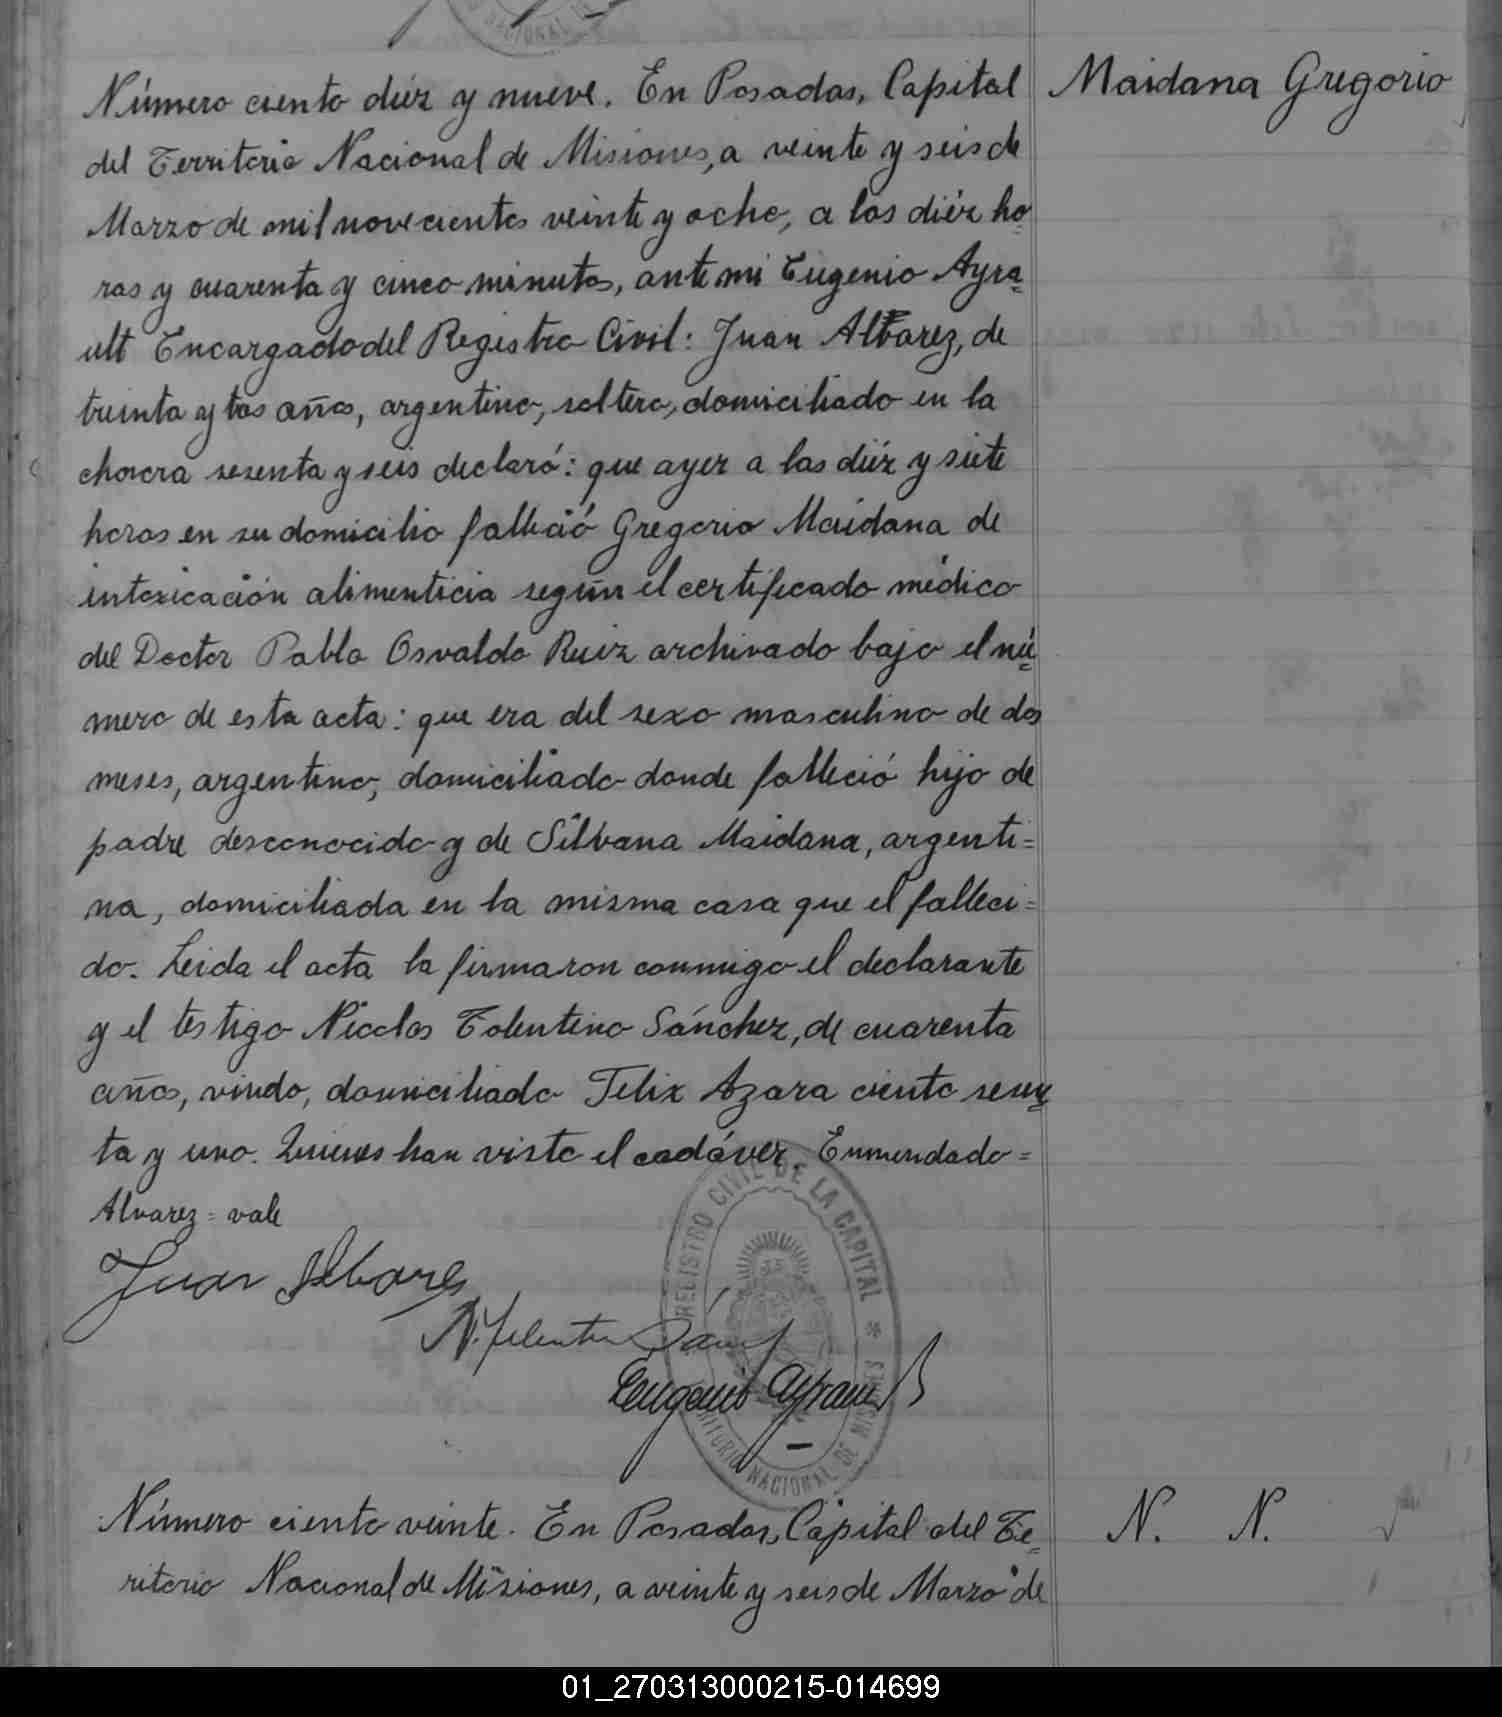 Maidana Gregorio
Número ciento diéz y nueve. En Posadas, Capital
del Territorio Nacional de Misiones, a veinte y seis de
Marzo de mil novecientos veinte y ocho, a las diéz ho-
ras y cuarenta y cinco minutos, ante mi Eugenio Ayra=
ult Encargado del Registro Civil: Juan Alvarez, de
treinta y tres años, argentino, soltero, domiciliado en la
chacra sesenta y seis declaró: que ayer a las diéz y siete
horas en su domicilio falleció Gregorio Maidana de
intoxicación alimenticia según el certificado médico
del Doctor Pablo Osvaldo Ruiz archivado bajo el nú=
mero de esta acta: que era del sexo masculino de dos
meses, argentino, domiciliado donde falleció hijo de
padre desconocido y de Silvana Maidana, argenti=
na, domiciliada en la misma casa que el falleci=
do. Leida el acta la firmaron conmigo el declarante
y el testigo Nicolas Tolentino Sánchez, de cuarenta
años, viudo, domiciliado Felix Azara ciento sesen
ta y uno. Quienes han visto el cadáver. Enmendado=
Alvarez=vale
Juan Albares
N. Tolentin Sánz
Eugenio Ayrault
REGISTRO CIVIL DE LA CAPITAL * TERRITORIO NACIONAL DE MISIONES
N. N.
Número ciento veinte. En Posadas, Capital del Te=
ritorio Nacional de Misiones, a veinte y seis de Marzo de
01_270313000215-014699